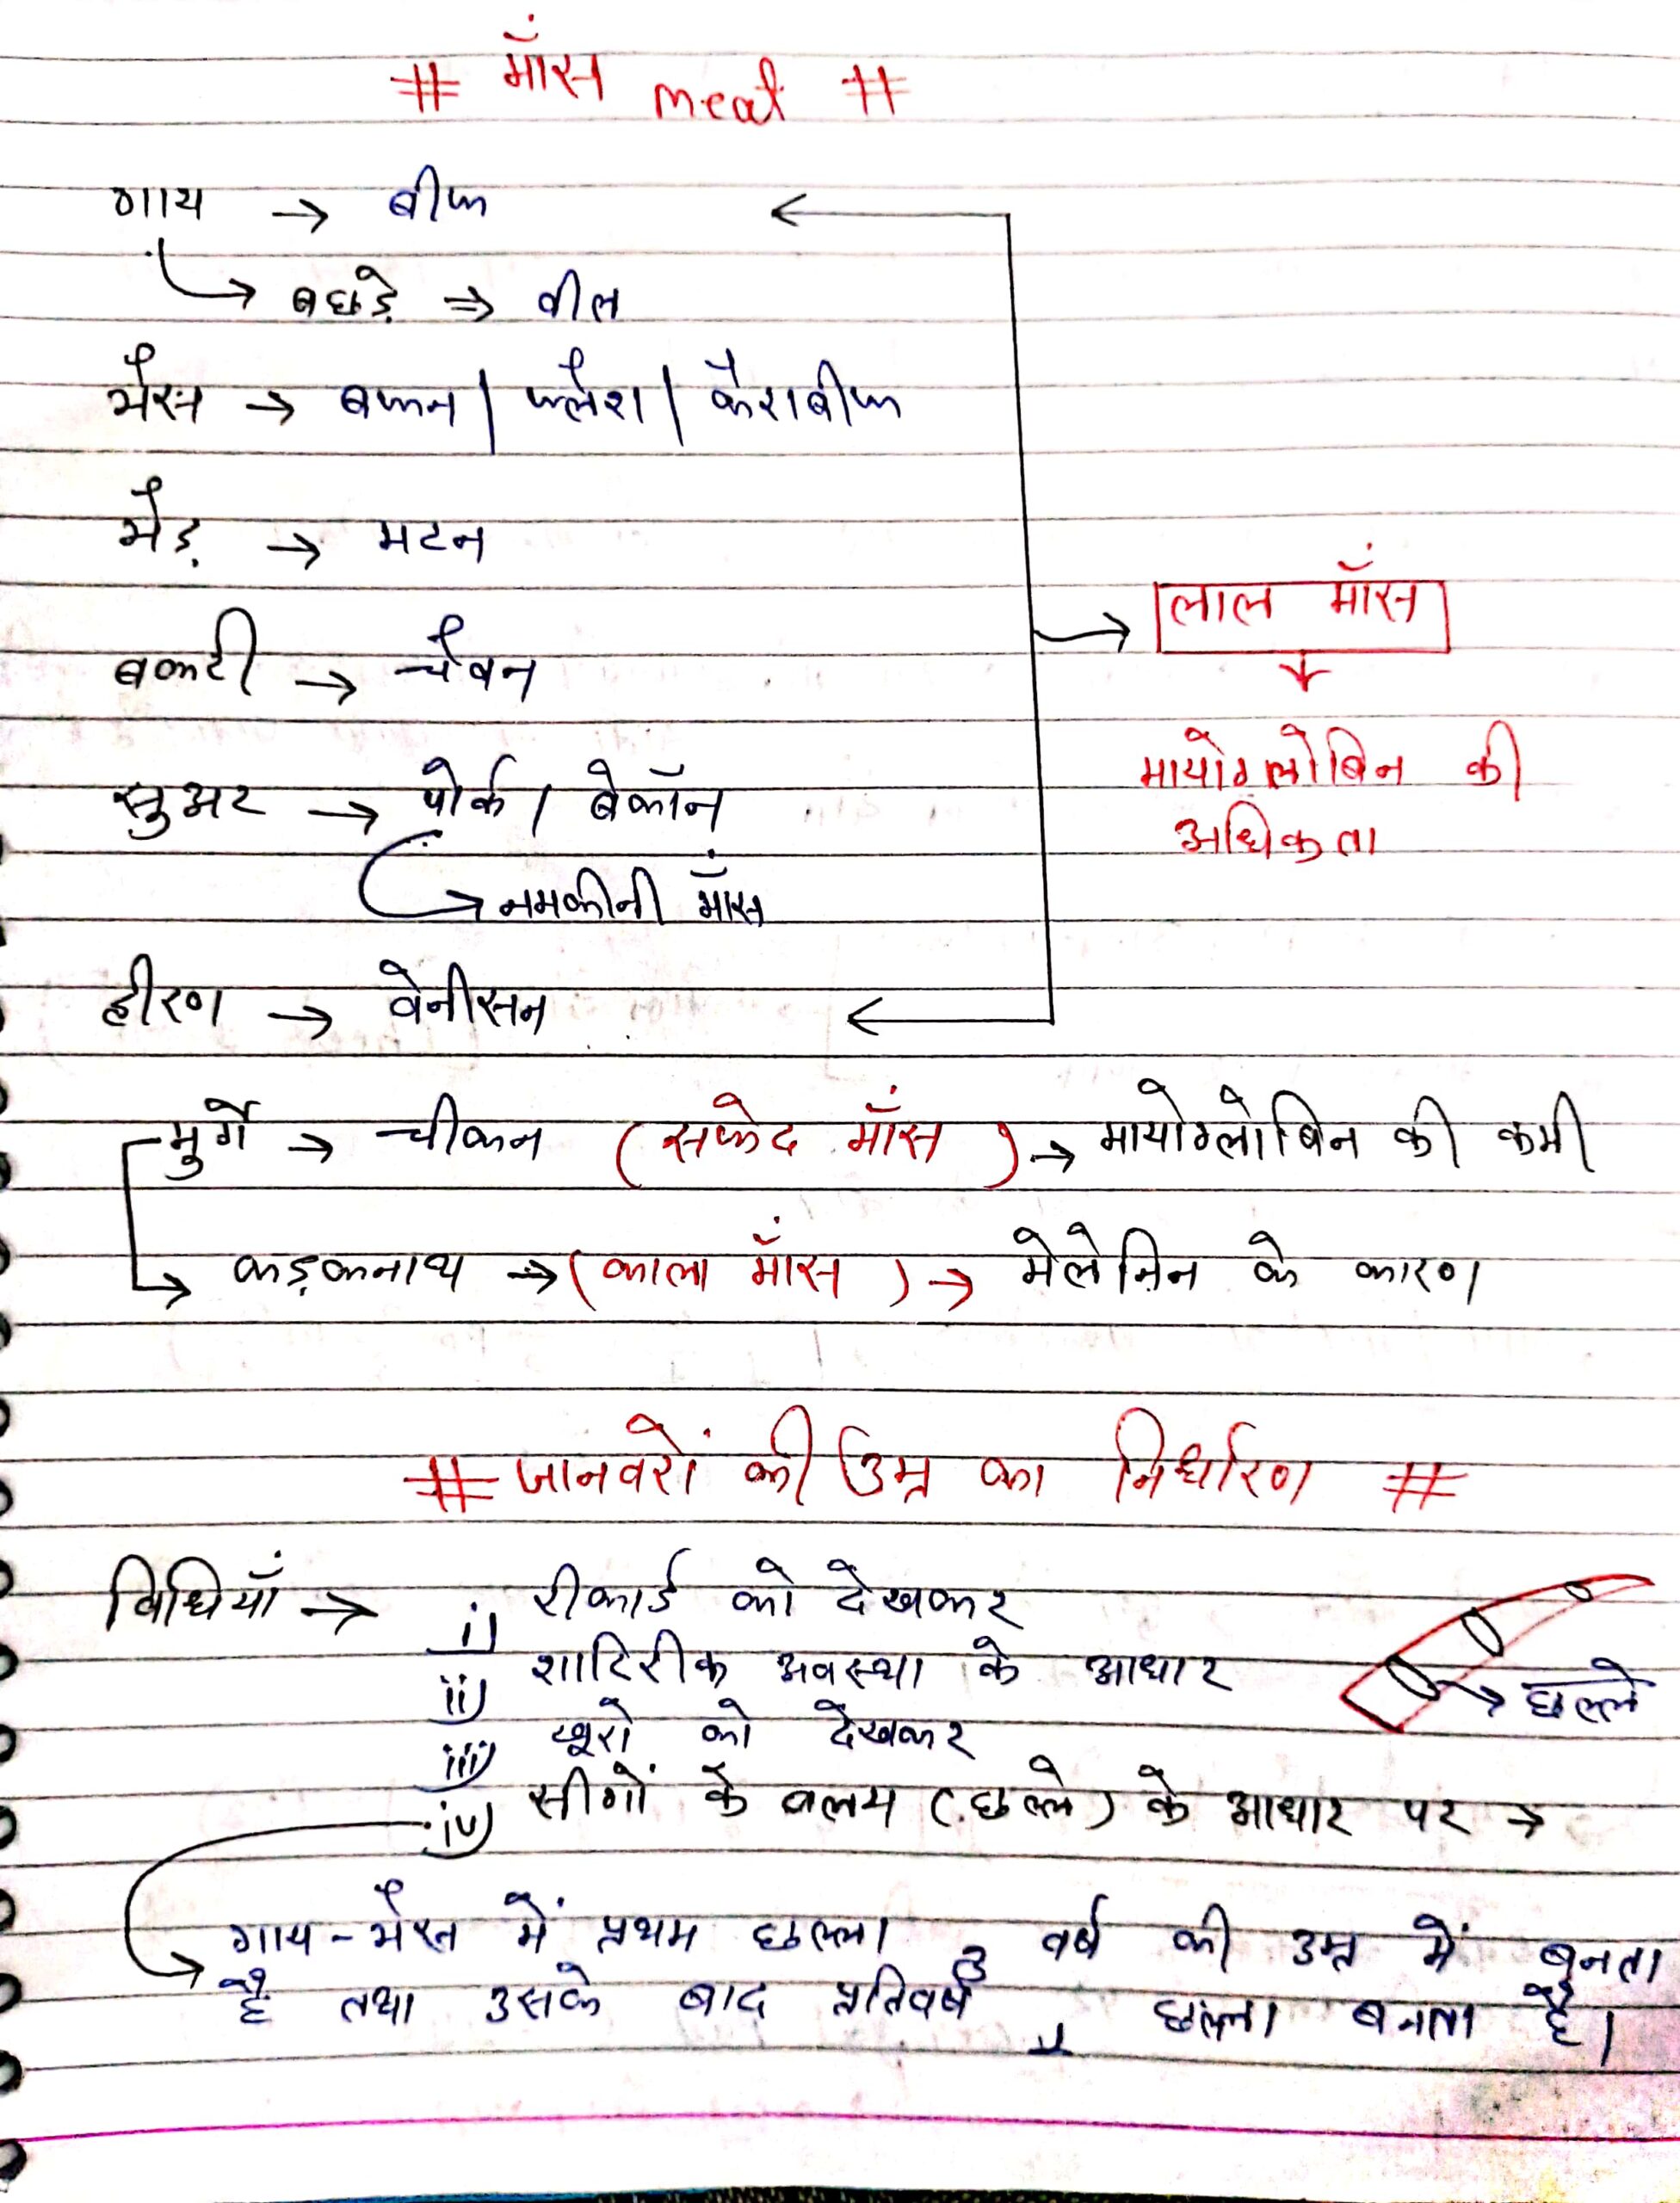 # माँस meat #
गाय → बीफ
→ बछड़े ⇒ वील
भैंस → बफन | फ्लैश | कैराबीफ
भेड़ → मटन
लाल माँस
बकरी → चैवन
मायोग्लोबिन की
सुअर → पोर्क / बेकॉन
अधिकता
→ नमकीनी माँस
हीरण → वेनीसन
मुर्गे → चीकन (सफेद माँस) → मायोग्लोबिन की कमी
→ कड़कनाथ → (काला माँस) → मेलेनिन के कारण
# जानवरों की उम्र का निर्धारण #
विधियाँ → i) रीकार्ड को देखकर
ii) शारिरीक अवस्था के आधार
→ छल्ले
iii) खूरो को देखकर
iv) सीगों के वलय (छल्ले) के आधार पर →
→ गाय-भैंस में प्रथम छल्ला 3 वर्ष की उम्र में बनता
है तथा उसके बाद प्रतिवर्ष 1 छल्ला बनता है।